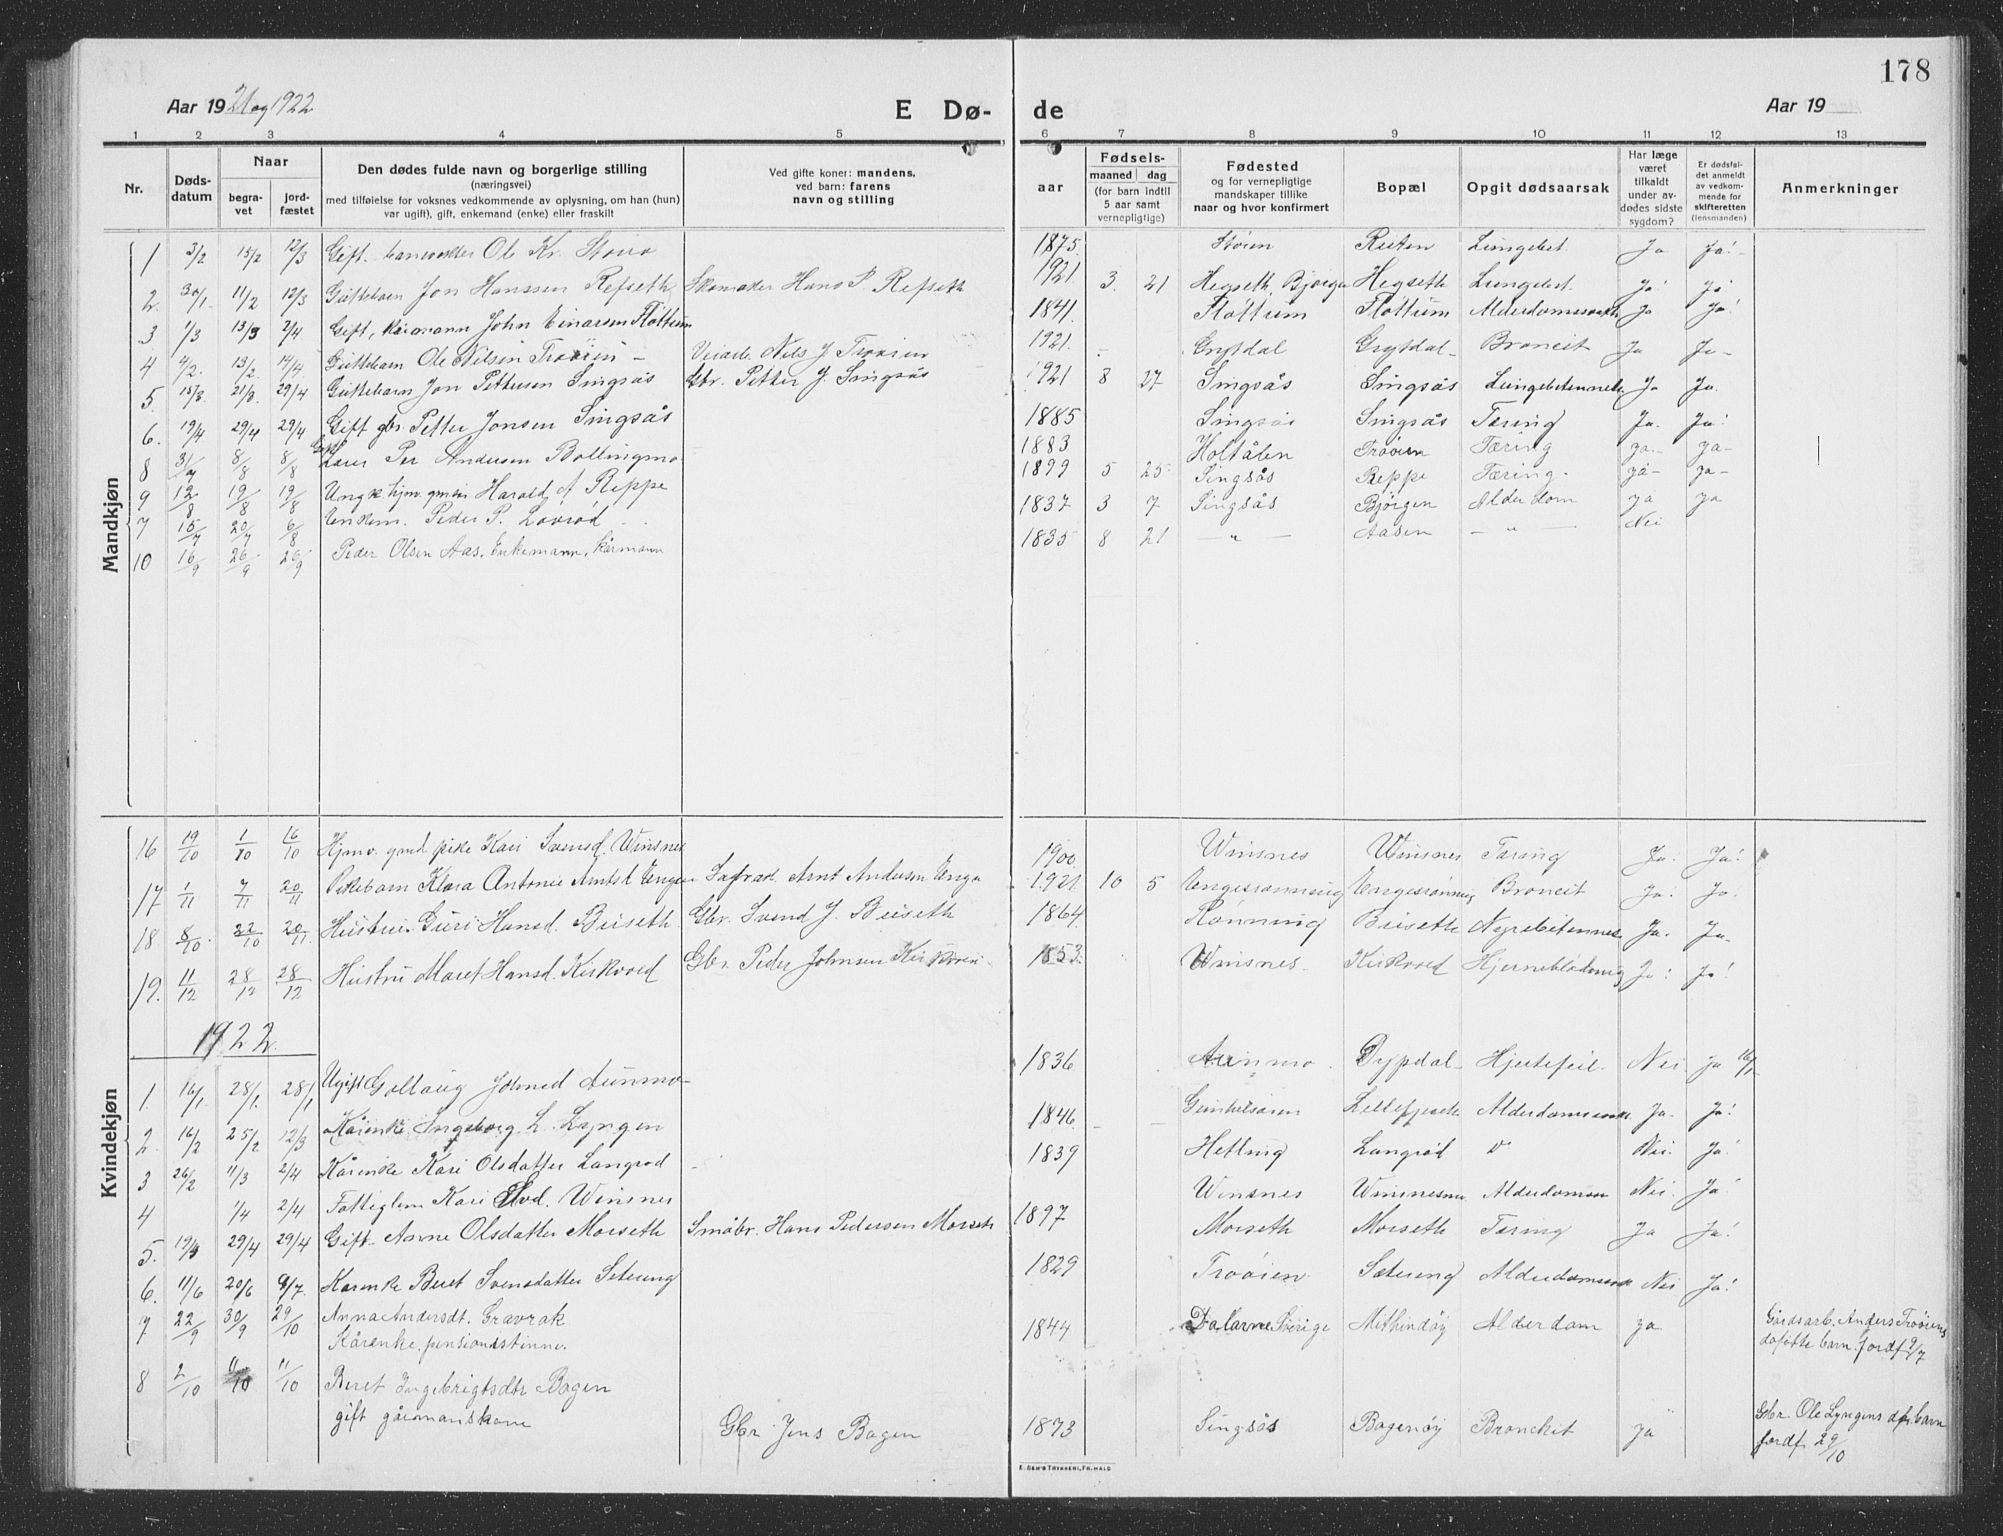 178
Aar 1921 og 1922 E Dø- de Aar 19
1 2 3 4 5 6 7 8 9 10 11 12 13
Nr. Dødsdatum Naar begravet jordfæstet
Den dødes fulde navn og borgerlige stilling
(næringsvei)
med tilføielse for voksnes vedkommende av oplysning, om han (hun)
var ugift), gift, enkemand (enke) eller fraskilt
Ved gifte koner: mandens,
ved barn: farens
navn og stilling
Fødsels-
aar maaned dag
(for barn indtil
5 aar samt
vernepligtige)
Fødested
og for vernepligtige
mandskaper tillike
naar og hvor konfirmert
Bopæl
Opgit dødsaarsak
Har læge
været
tilkaldt
under av-
dødes sidste
sygdom?
Er dødsfal-
det anmeldt
av vedkom-
mende for
skifteretten
(lensmanden)
Anmerkninger
Mandkjøn
1 3/2 15/2 12/3 Gift. banevokter Ol. Kr. Støien 1875. Støien Reiten Lungebet. Ja Ja!
2. 30/1 11/2 12/3 Guttebarn Jon Hanssen Refseth Skomaker Hans P. Refseth 1921 3. 21 Hegseth Bjørgen Hegseth Lungebet. Ja Ja
3 1/3 13/3 2/4 Gift, kårmann John Einarsen Flottum 1841. Flottum Flottum Alderdomssvakh Ja Ja!
4 4/2. 13/2. 14/4. Guttebarn Ole Nilsen Trøien Veiarb. Nils J. Trøien 1921. Grytdal Grytdal Broncit Ja Ja
5. 15/3 21/3. 29/4 Guttebarn Jon Pettersen Singsås Gbr. Petter J. Singsås 1921 8 27 Singsås Singsås Lungebetennelse Ja Ja.
6. 19/4 29/4 29/4 Gift gbr. Petter Jonsen Singsås 1885 Singsås Singsås Tæring Ja. Ja!
8 31/7 8/8 8/8 Per Andersen Bollingmo 1883 Holtålen Trøien Tæring ja ja
9 12/8 19/8 19/8 Ungk. hjmv. gmln Harald A Reppe 1899 5 25 Singsås Reppe Tæring. ja ja
7 15/7 20/7 6/8 Enkem. Peder P. Lovrød 1837 3 7 Singsås Bjørgen Alderdom ja ja
10 16/9 26/9 26/9 Peder Olsen Aas. Enkemann, kårmann 1835 8 21 — " — Aasen — " — Nei
Kvindekjøn
16 19/10 1/10 16/10 Hjmv. gmd pike Kari Svensd. Winsnes 1900. Winsnes Winsnes Tæring Ja. Ja!
17 1/11 7/11 20/11 Pikebarn Klara Antonie Arntsd. Engen Sagarb. Arnt Andersen Enga 1921. 10 5 Engesrønning Engesrønning Broncit Ja! Ja.
18 8/10. 22/10 20/11. Hustru Guri Hansd. Buseth Gbr. Svend J. Buseth 1864. Rønning Buseth Nyrebetennels. Ja. Ja.
19. 11/12 28/12 28/12 Hustru Maret Hansd. Kirkvold Gbr. Peder Johnsen Kirkvold 1853. Winsnes. Kirkvold Hjerneblødning Ja: Ja!
1922.
1. 16/1. 28/1. 28/1 Ugift Gollaug Johnsd Aunmo 1836 Aunmo. Dypdal Hjertefeil. Nei Ja 16/1
2. 16/2 25/2 12/3 Kårenke Ingeborg L. Lyngen 1846. Alderdomssvakh Ja. Ja!
3 26/2 11/3 2/4 Kårenke Kari Olsdatter Langrød 1839 Hetling Langrød Nei. Ja.
4 1/4 2/4 Fattiglem Kari Winsnes Winsnes Alderdomssv Nei. Ja!
5. 19/4 29/4 29/4 Gift. Anne Olsdatter Morseth Småbr. Hans Pedersen Morseth 1897 Morseth Morseth Tæring Ja Ja!
6. 11/6 20/6 9/7. Kårenke Beret Svensdatter Setering 1829 Trøien Sætering Alderdomssvak Nei Ja!
7 22/9 30/9 29/10 Anna Andersdt. Gravrak 1844 Dalarne Sverige Alderdom ja Gårdsarb. Anders Trøiens
Kårenke, pensionistinne. døfødte barn fordf. 9/7
8 2/10 11/10 11/10 Beret Ingebrigtsdtr Bogen
gift gårmanskone Gbr Jens Bogen 1873 Singsås Bogenøy Bronchit ja Gbr. Ole Lyngens dpf. barn
fordf. 29/10
E. Sem's Trykkeri, Fr.hald